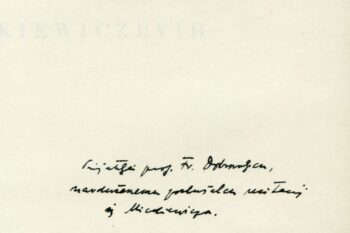 KIEWICZEVIH
Prijatelju prof. Fr. Dobrovoljcu,
navdušenemu poslušalcu recitacij
iz Mickiewicza.